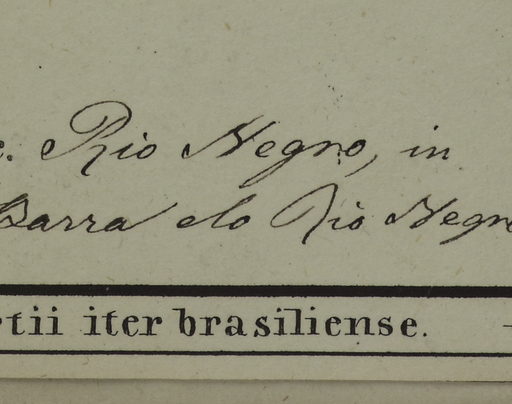 . Rio Negro, in
Barra do Rio Negro
rtii iter brasiliense.